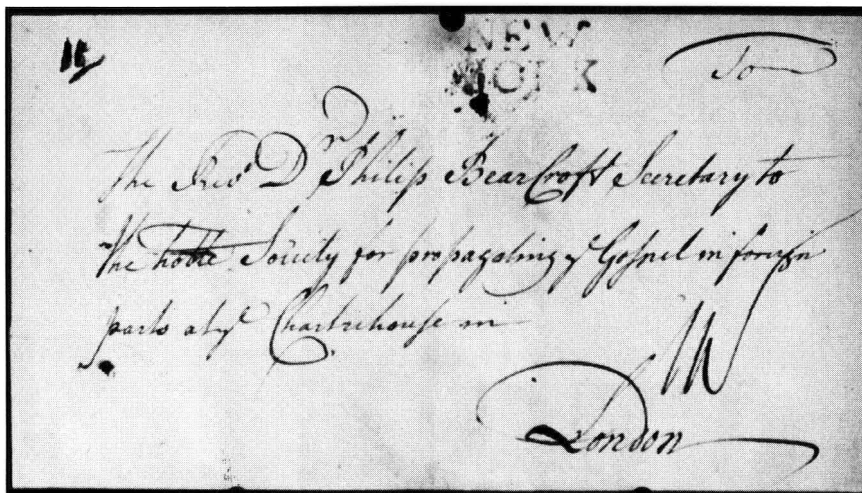 NEW
YORK
To
The Revd Dr Philip BearCroft Secretary to
The Society for propagating ye Gospel in foreign
parts at ye Chartrehouse in
London